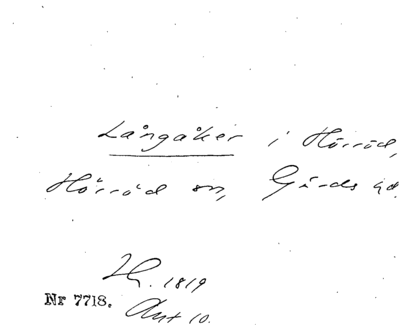 Långåker i Hörröd,
Hörröd sn, Gärds hd.
1819
Nr 7718. Akt 10.